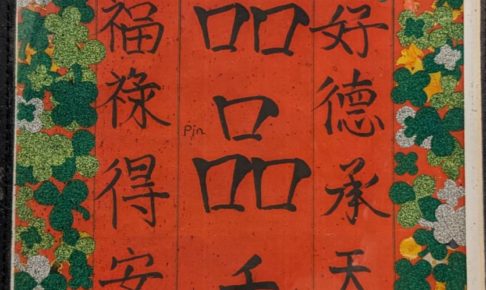 好德承天
品品
Pin
福祿得安